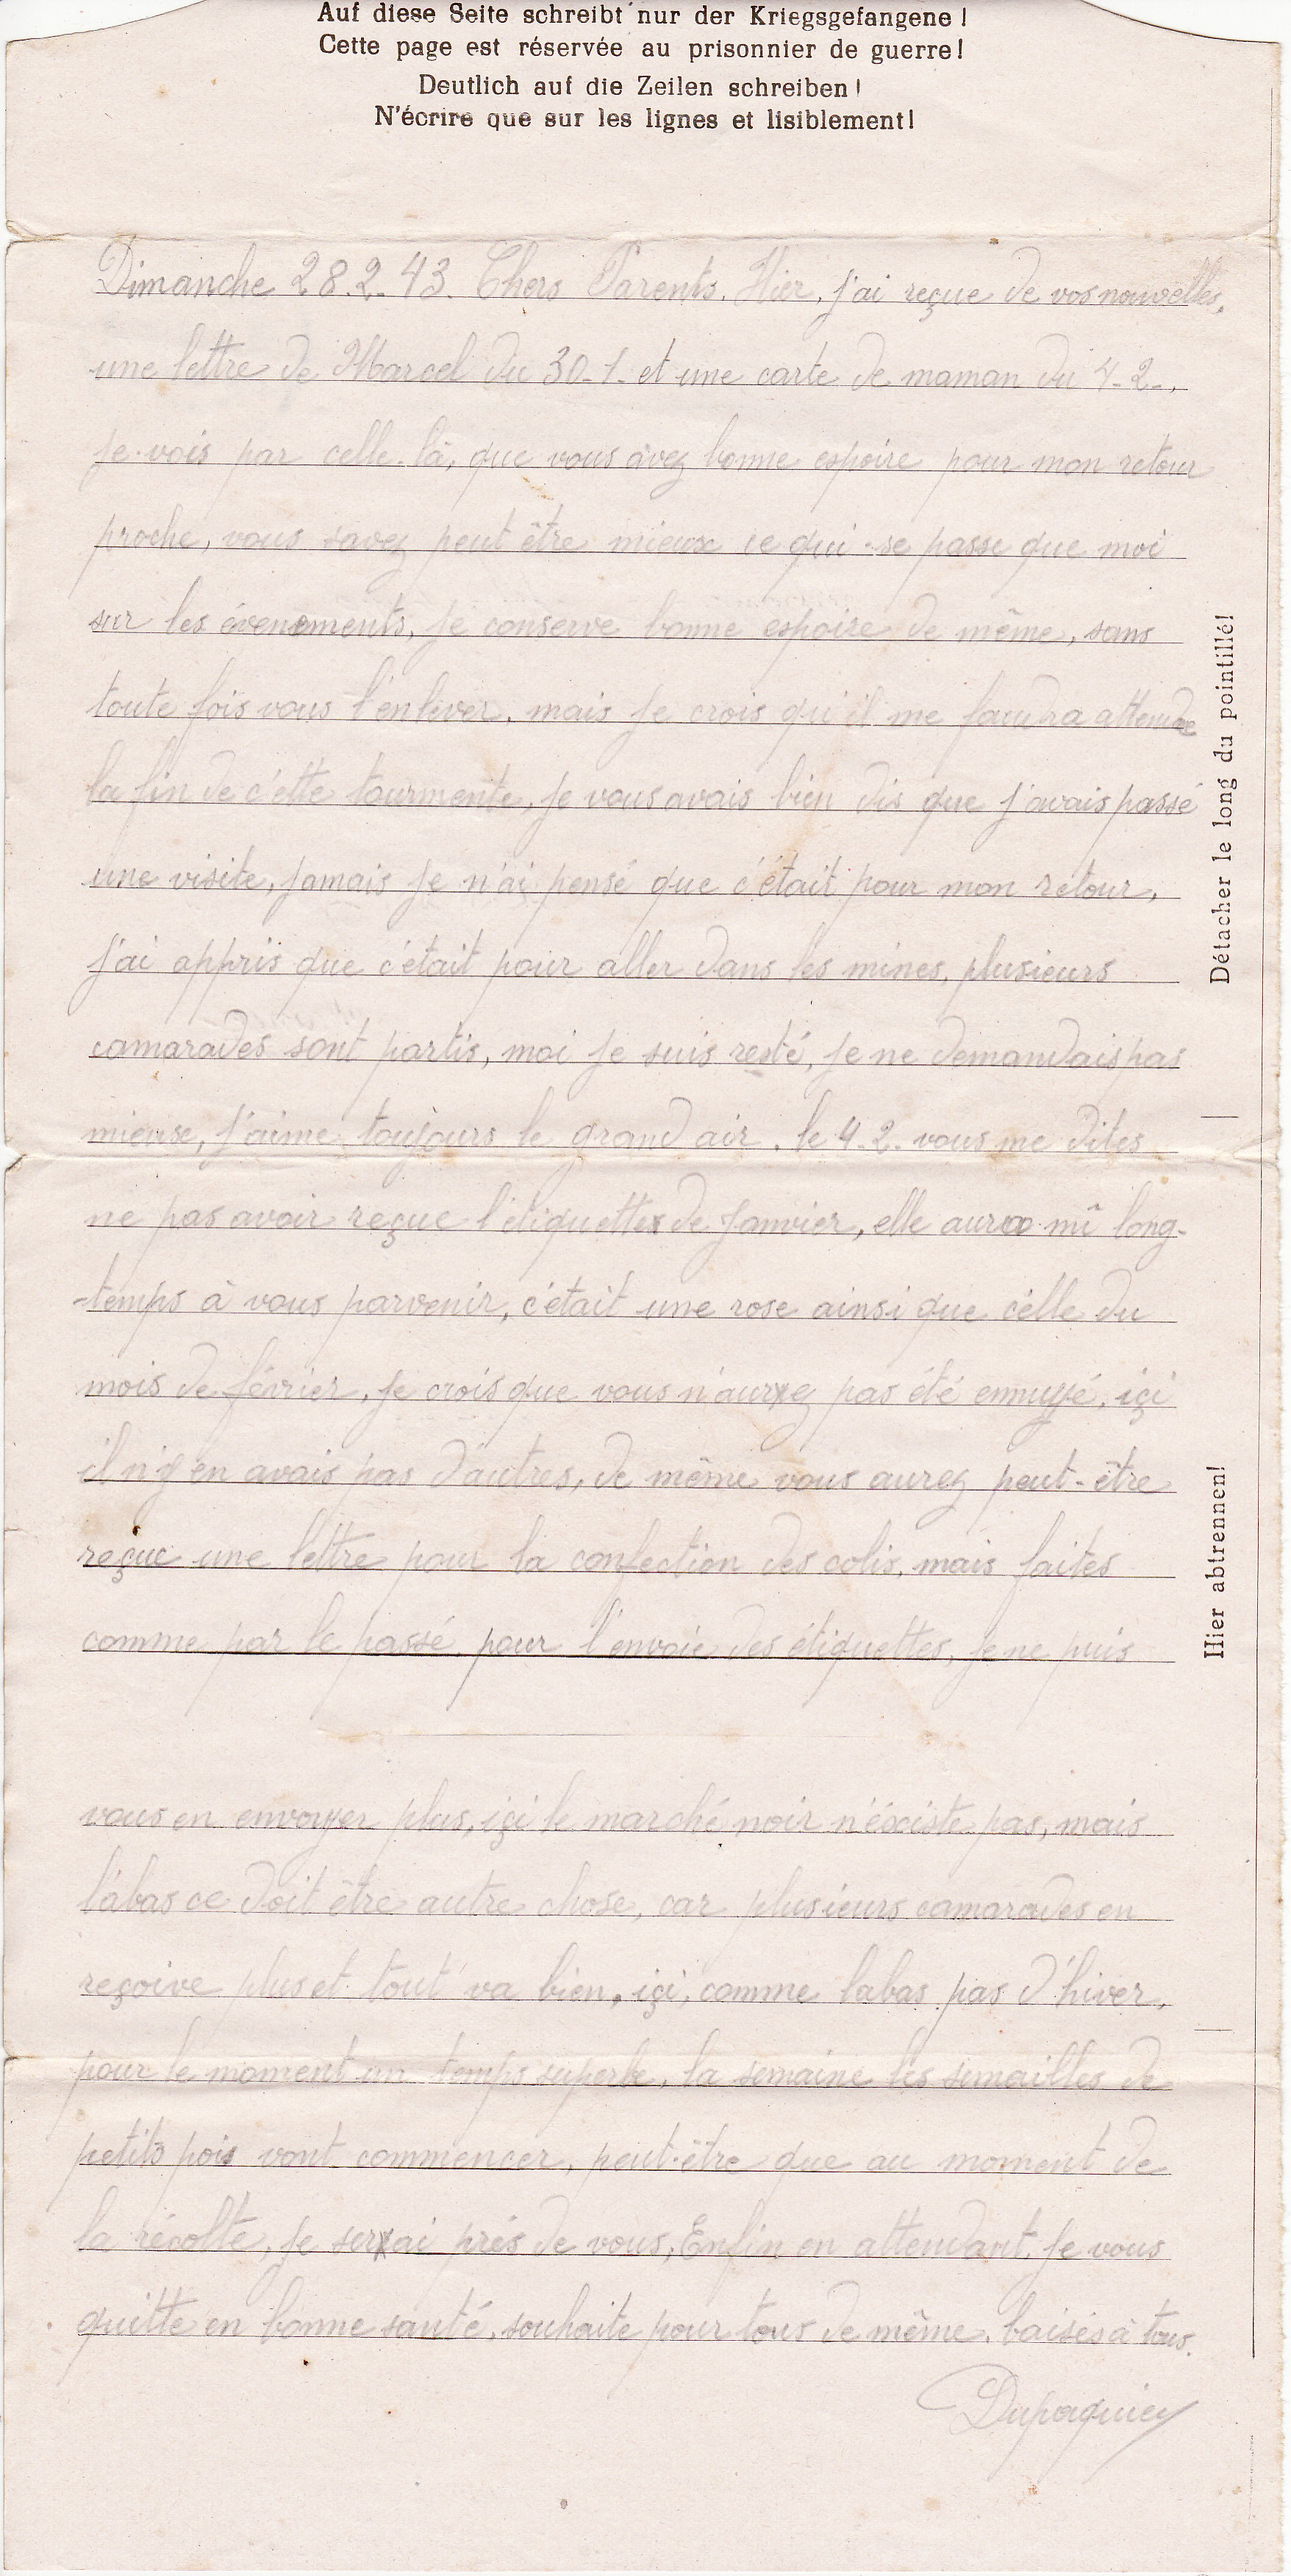 Auf diese Seite schreibt nur der Kriegsgefangene!
Cette page est réservée au prisonnier de guerre!
Deutlich auf die Zeilen schreiben!
N'écrire que sur les lignes et lisiblement!
Dimanche 28.2.43. Chers Parents. Hier, j'ai reçue de vos nouvelles,
une lettre de Marcel du 30-1- et une carte de maman du 4-2-,
je vois par celle-là, que vous avez bonne espoire pour mon retour
proche, vous savez peut être mieux ce qui se passe que moi
sur les évenements, je conserve bonne espoire de même, sans
toute fois vous l'enlever, mais je crois qu'il me faudra attendre
la fin de c'ette tourmente, je vous avais bien dis que j'avais passé
une visite, jamais je n'ai pensé que c'était pour mon retour,
j'ai appris que c'était pour aller dans les mines, plusieurs
camarades sont partis, moi je suis resté, je ne demandais pas
mieuse, j'aime toujours le grand air. le 4-2- vous me dites
ne pas avoir reçue l'étiquette de Janvier, elle aura mî long-
-temps à vous parvenir, c'était une rose ainsi que célle du
mois de février, je crois que vous n'aurez pas été ennuyé, içi
il n'y en avais pas d'autres, de même vous aurez peut-être
reçue une lettre pour la confection des colis, mais faites
comme par le passé, pour l'envoie des étiquettes, je ne puis
vous en envoyer plus, içi le marché noir n'éxiste pas, mais
làbas ce doit être autre chose, car plusieurs camarades en
reçoive plus et tout va bien, içi, comme labas pas d'hiver,
pour le moment un temps superbe, la semaine les semailles de
petits pois vont commencer, peut-être que au moment de
la récolte, je serai prés de vous, Enfin en attendant, je vous
quitte en bonne santé, souhaite pour tous de même, baisés à tous.
Dupaquier
Détacher le long du pointillé!
Hier abtrennen!